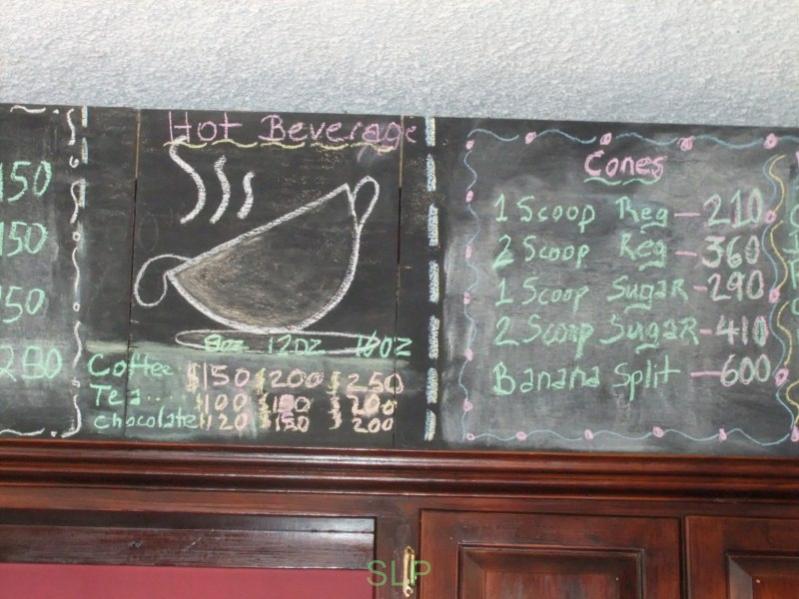 150
150
150
280
Hot Beverage
8oz 12oz 16oz
Coffee $150 $200 $250
Tea... $100 $150 $200
chocolate $120 $150 200
Cones
1 Scoop Reg - 210
2 Scoop Reg - 360
1 Scoop Sugar - 290
2 Scoop Sugar - 410
Banana Split - 600
SLP